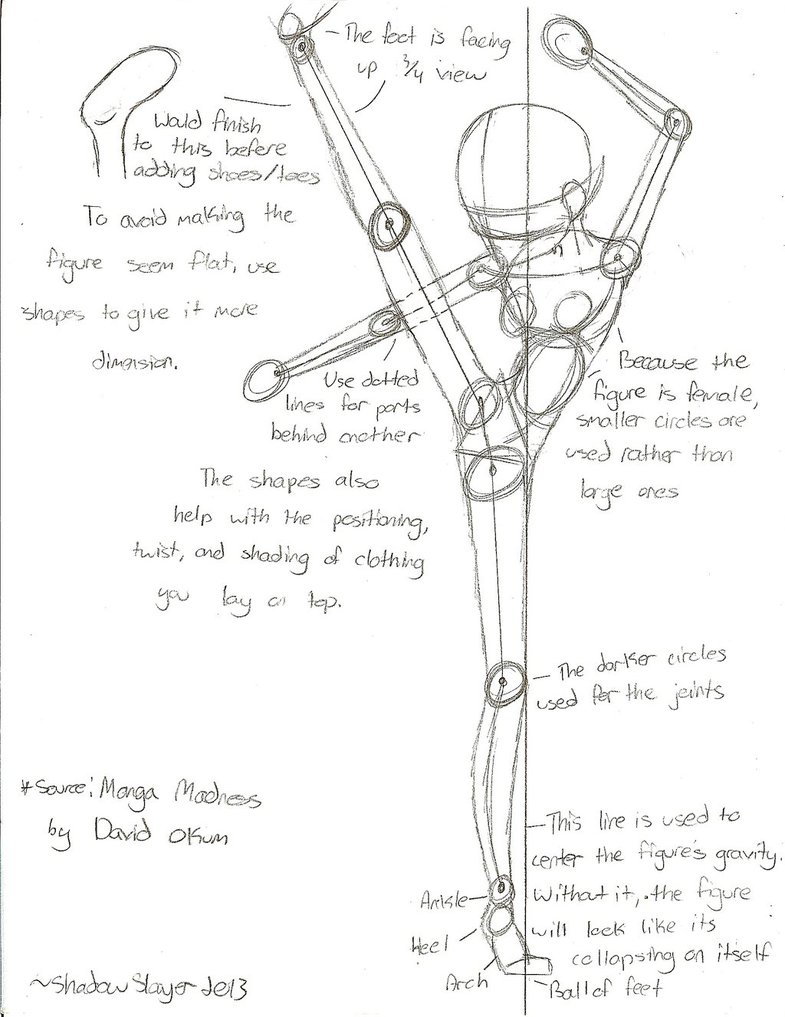 The foot is facing
up 3/4 view
Would finish
to this before
adding shoes/toes
To avoid making the
figure seem flat, use
shapes to give it more
dimension.
Use dotted
lines for parts
behind another
Because the
figure is female,
smaller circles are
used rather than
large ones
The shapes also
help with the positioning,
twist, and shading of clothing
you lay on top.
The darker circles
used for the joints
* Source: Manga Madness
by David Okum
This line is used to
center the figure's gravity.
Without it, the figure
will look like its
collapsing on itself
Ankle
Heel
Arch
Ball of feet
~Shadow Slayer de13